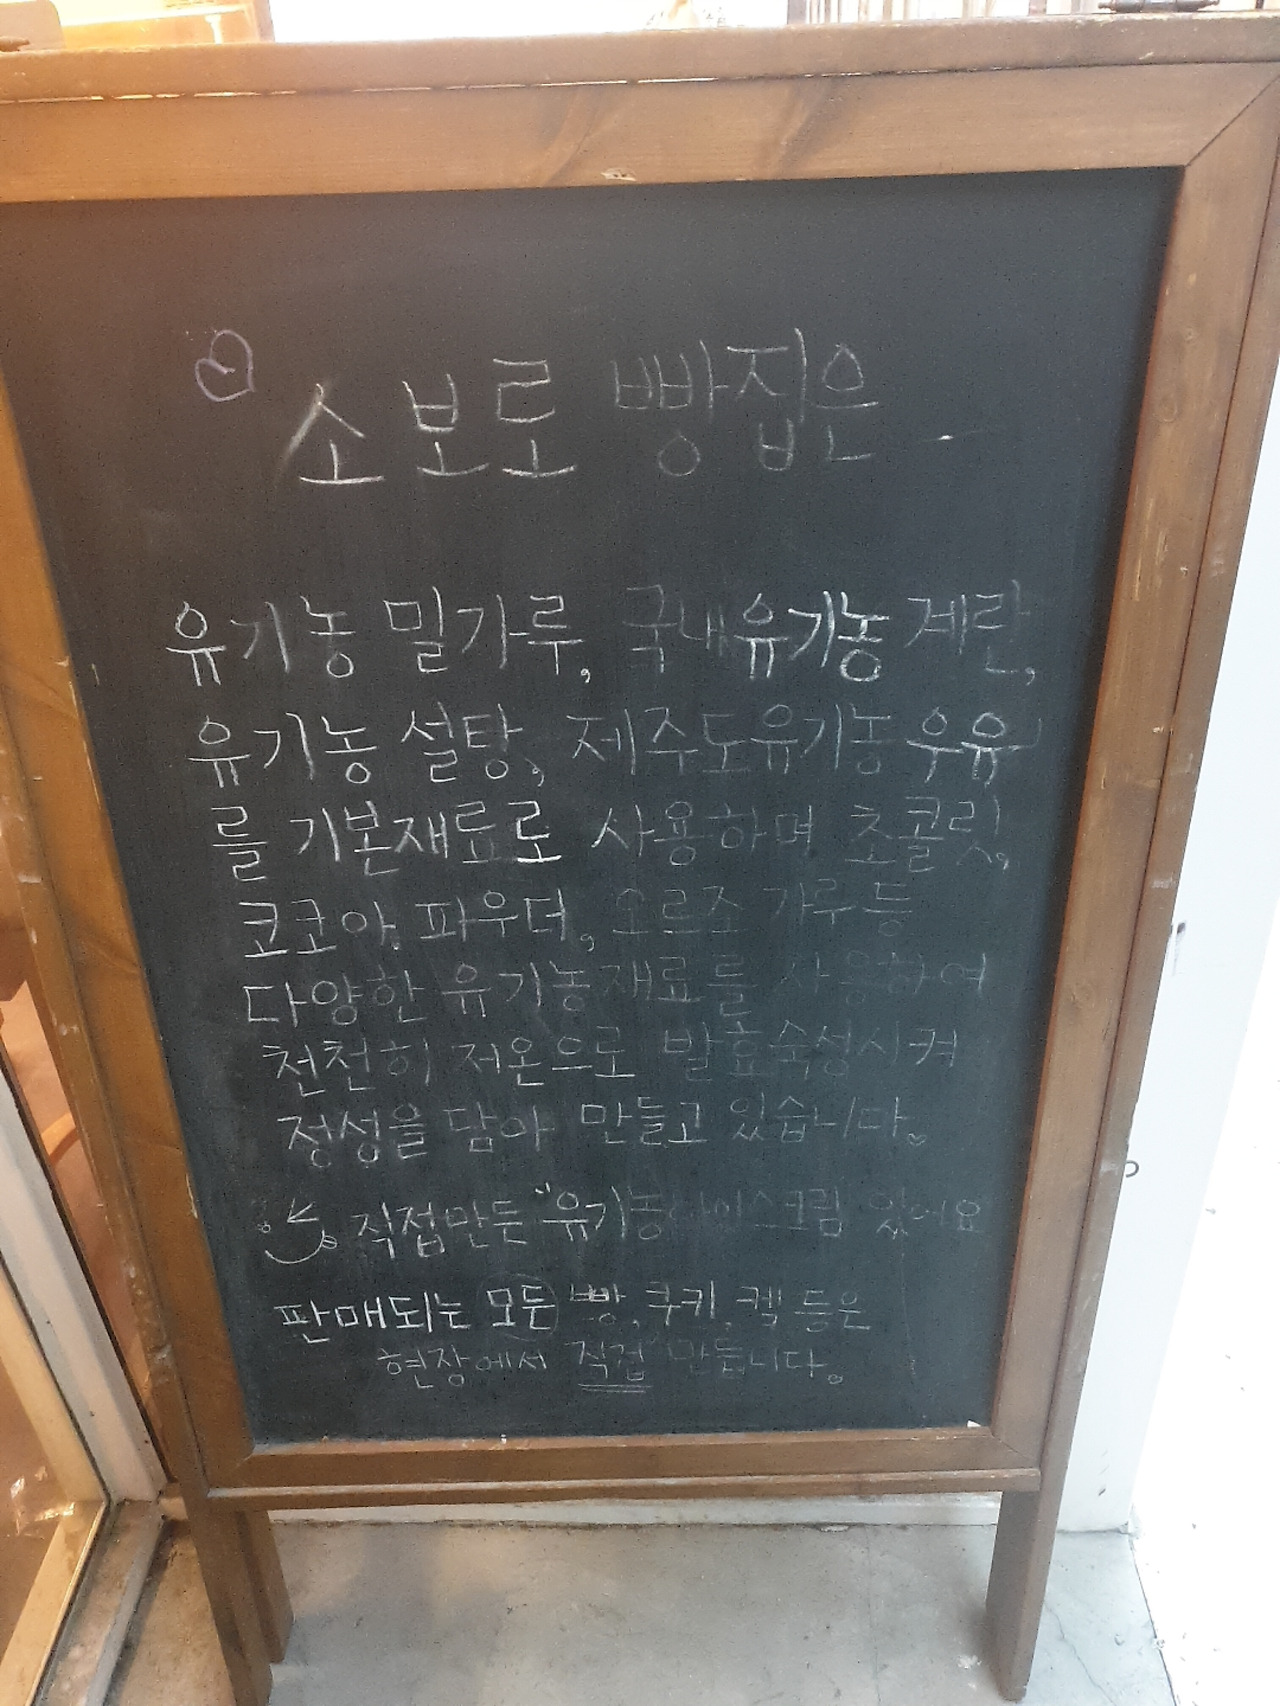 소보로 빵집은
유기농 밀가루, 국내유기농 계란,
유기농 설탕, 제주도유기농 우유
를 기본재료로 사용하며 초콜릿,
코코아 파우더, 오르조 가루 등
다양한 유기농재료를 사용하여
천천히 저온으로 발효숙성시켜
정성을 담아 만들고 있습니다.
직접만든 "유기농아이스크림 있어요
판매되는 모든 빵, 쿠키, 켘 등은
현장에서 직접 만듭니다.